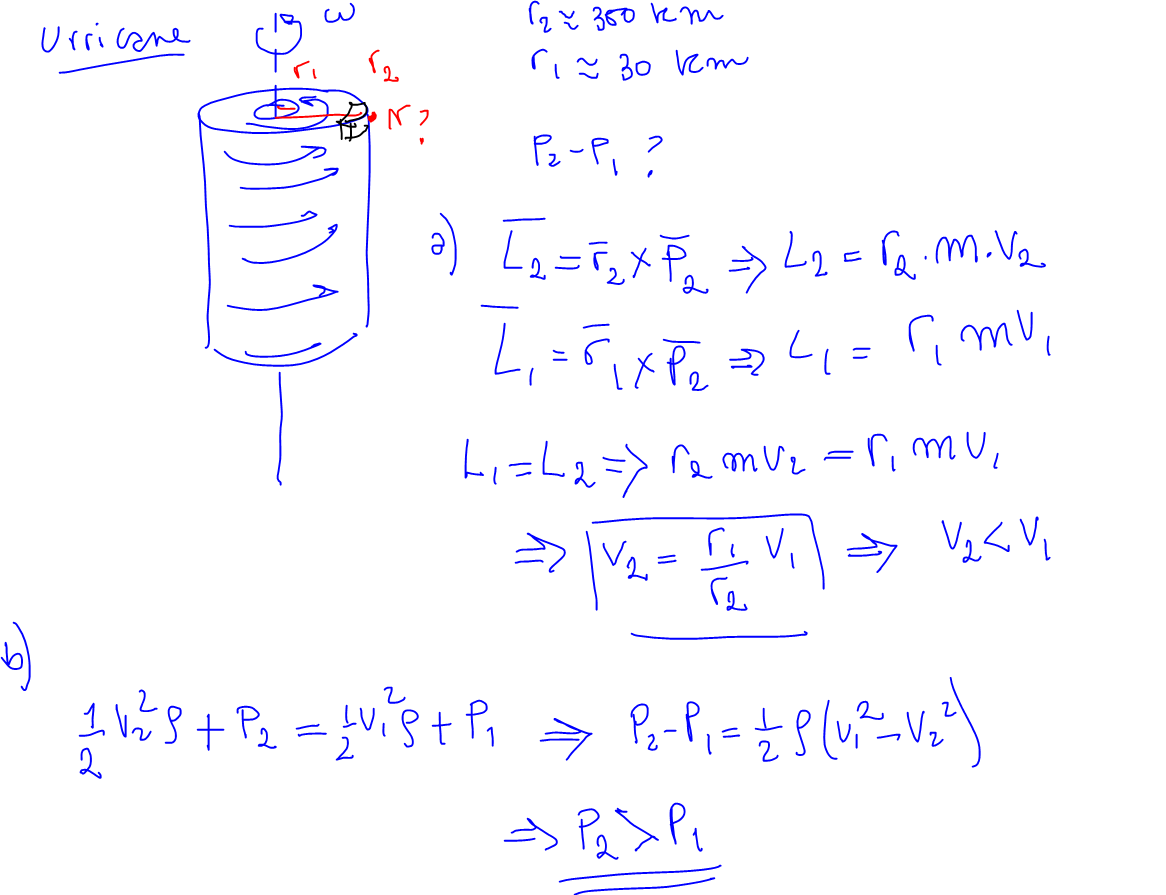 Urricane
ω
r₂ ≈ 300 km
r₁ ≈ 30 km
r₁ r₂
v?
P₂-P₁ ?
a) L̅₂ = r̅₂ × P̅₂ ⇒ L₂ = r₂.m.v₂
L̅₁ = r̅₁ × P̅₂ ⇒ L₁ = r₁ m v₁
L₁ = L₂ ⇒ r₂ m v₂ = r₁ m v₁
⇒ v₂ = r₁/r₂ v₁ ⇒ v₂ < v₁
b)
1/2 v₂² ρ + P₂ = 1/2 v₁² ρ + P₁ ⇒ P₂-P₁ = 1/2 ρ (v₁² - v₂²)
⇒ P₂ > P₁